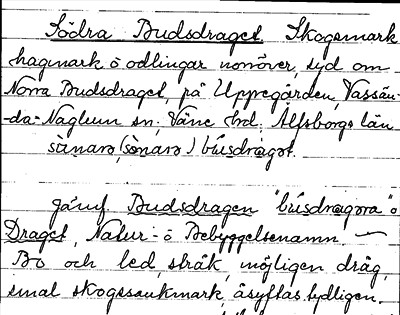 Södra Budsdraget Skogsmark
hagmark o odlingar norröver, syd om
Norra Budsdraget, på Uppregården, Vassän-
-da-Naglum sn, Väne hrd, Älfsborgs län
(sönarə) bu̇sdragət.
jämf. Budsdragen "bu̇sdragəna" o
Draget, Natur- o Bebyggelsenamn.
Bo och led, stråk, möjligen dråg,
smal skogssankmark, åsyftas tydligen.